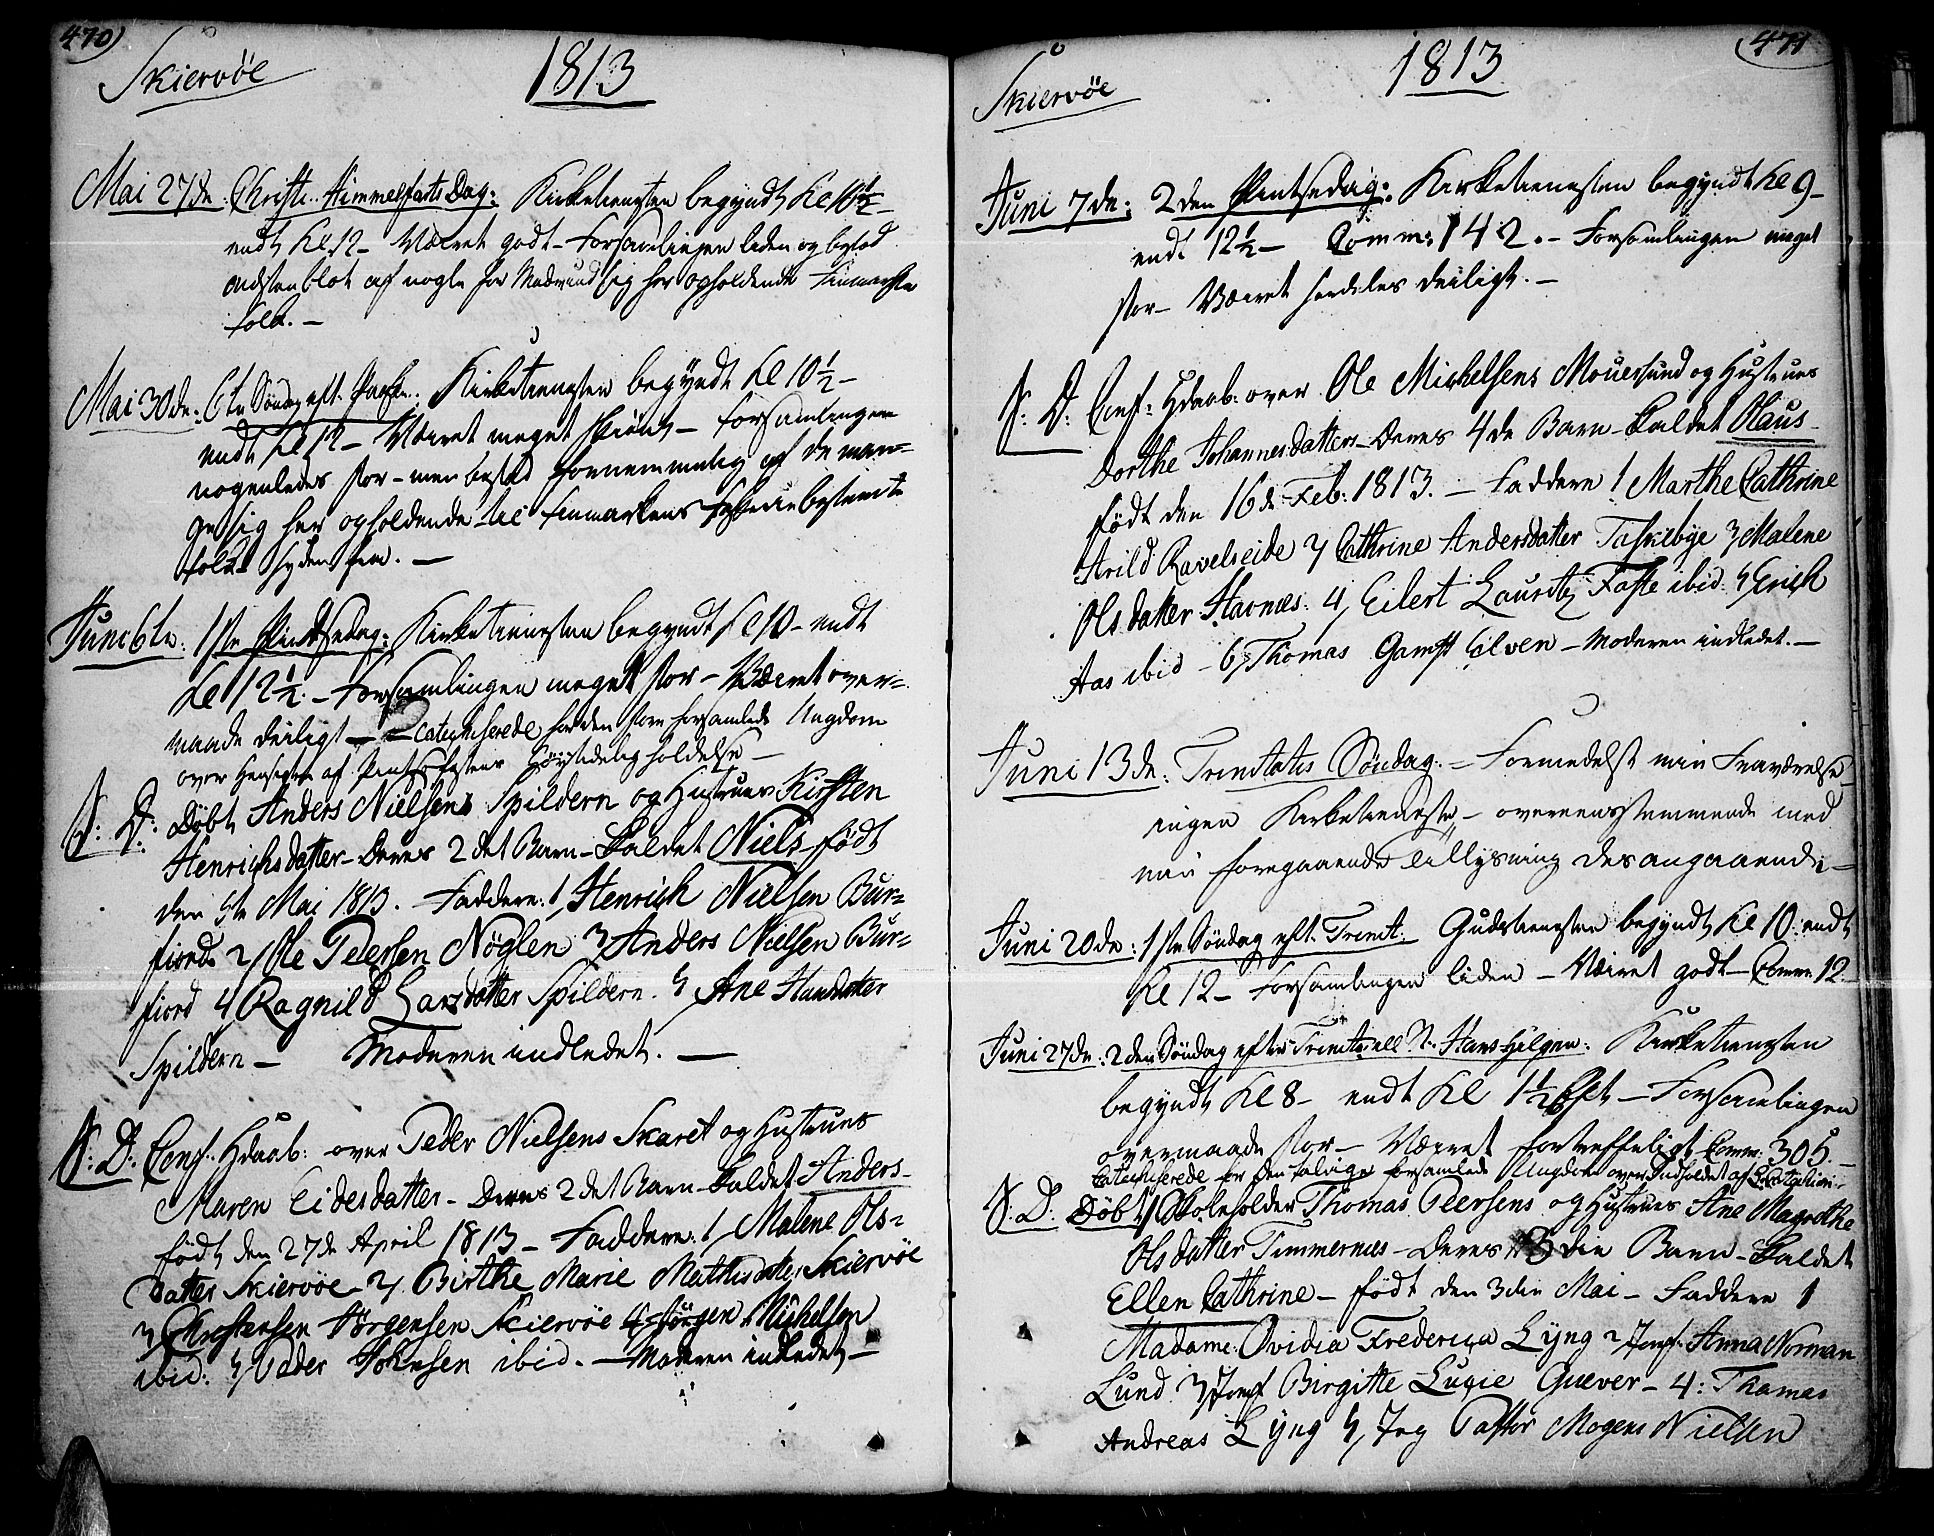 470)
Skiervöe 1813
Mai 27de Christi Himmelfarts Dag: Kirketienesten begyndt Kl 10½ –
endt Kl. 12 – Væiret godt – Forsamlingen liden og bestod
mesten blot af nogle for Madmund sig her opholdende Finmarkens
folk. –
Mai 30de: 6te Søndag eft. Paaske: Kirketienesten begyndt Kl 10½ –
endt Kl 12 – Væiret meget skiönt – Forsamlingen
nogenledes stor – men bestod fornemmelig af de man=
ge sig her opholdende til Finmarkens bestemte
folk Syden fra. –
Juni 6te: 1ste Pindsedag: Kirketienesten begyndt Kl 10 – endt
Kl 12½. – Forsamlingen meget stor – Væiret over=
maade deiligt – Catechiserede for den store forsamlede Ungdom
over Hensigten af Pintsefestens höytidelig holdelse –
N: D: Döbt Anders Nielsens Spildern og Hustrues Kirsten
Henrichsdatter – Deres 2det Barn – Kaldet Niels – födt
den 5te Mai 1813. – Faddere: 1, Henrich Nielsen Bur=
fiord 2, Ole Peersen Nöglen 3, Anders Nielsen Bur=
fiord 4, Ragnild Larsdatter Spildern. 5, Ane Hansdatter
Spildern – Moderen indledet. –
N: D: Conf: Hdaab: over Peder Nielsens Skaret og Hustrues
Maren Eidersdatter – Deres 2det Barn – Kaldet Anders –
födt den 27de April 1813 – Faddere: 1, Malene Ols=
datter Skiervöe – 2, Birthe Marie Mathisdatter Skiervöe
3, Christensen Jörgensen Skiervöe 4, Jörgen Michelsen
ibid: 5, Peder Johnsen ibid. – Moderen indledet –
471
Skiervöe 1813
Juni 7de: 2den Pintsedag: Kirketienesten begyndt Kl 9 –
endt 12½ – Comm: 142. – Forsamlingen meget
stor – Væiret serdeles deiligt. –
N: D: Conf: Hdaab: over Ole Michelsens Mouersund og Hustrues
Dorthe Johannesdatters – Deres 4de Barn – Kaldet Olaus –
födt den 16de Feb: 1813. – Faddere 1 Marthe Cathrine
Arild Ravelseide 2, Cathrine Andersdatter Taskebye 3, Malene
Olsdatter Havnæs: 4, Eilert Lauritz Faste ibid: 5, Erich
Aas ibid – 6, Thomas Gamst Eilven – Moderen indledet. –
Juni 13de: Trinitatis Söndag: – Formedelst min Fraværelse
ingen Kirketieneste – overeensstemmende med
min foregaaende Tillysning desangaaende –
Juni 20de: 1ste Söndag eft. Trinit: Gudstienesten begyndt Kl 10: endt
Kl 12 – Forsamlingen liden – Væiret godt – Comm: 12 –
Juni 27de: 2den Söndag efter Trinitatis ell St. Hans Hélgen: Kirketienesten
begyndt Kl 8 – endt Kl 1½ Eft – Forsamlingen
overmaade stor – Væiret fortreffeligt Comm: 305 –
Catechiserede for den talrige forsamlede Ungdom over Indholdet af
N: D: Döbt Skoleholder Thomas Peersens og Hustrues Ane Magrethe
Olsdatter Timmernæs – Deres 3die Barn – Kaldet
Ellen Cathrine – födt den 3die Mai – Faddere 1
Madame Ovidia Frederica Lyng 2 Jomf: Anna Norman
Lund 3 Jomf Birgitte Lucie Quever – 4: Thomas
Andreas Lyng 5, Jeg Pastor Mogens Nielsen